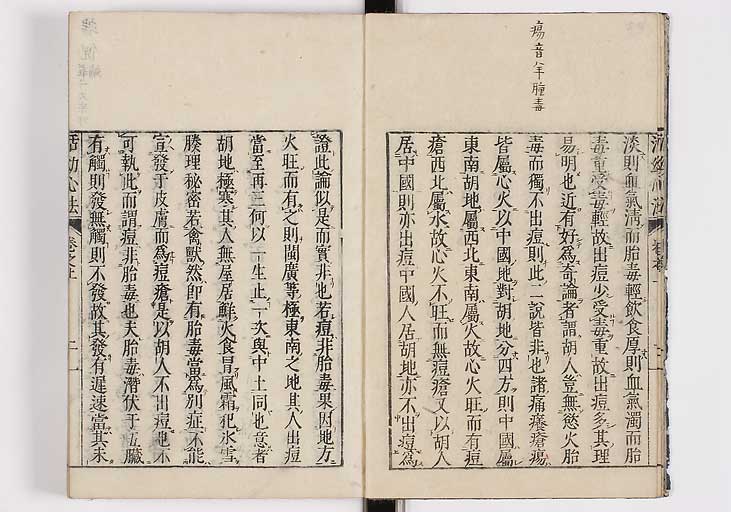 瘍音羊腫毒
淡則血氣淸而胎毒輕飲食厚則血氣濁而胎
毒重受毒輕故出痘少受毒重故出痘多其理
易明也近有好爲奇論者謂胡人豈無慾火胎
毒而獨不出痘則此二說皆非也諸痛癢瘡瘍
皆屬心火以中國地對胡地分四方則中國屬
東南胡地屬西北東南屬火故心火旺而有痘
瘡西北屬水故心火不旺而無痘瘡又以胡人
居中國則亦出痘中國人居胡地亦不出痘爲
證此論似是而實非也若痘非胎毒果因地方
火旺而有之則閩廣等極東南之地其人出痘
當至再三何以一生止一次與中土同也意者
胡地極寒其人無屋居鮮火食冐風霜犯氷雪
腠理秘密若禽獸然卽有胎毒當爲別症不能
宣發于皮膚而爲痘瘡是以胡人不出痘也不
可執此而謂痘非胎毒也夫胎毒潛伏于五臟
有觸則發無觸則不發故其發有遲速當其未
活幼心法
卷之上